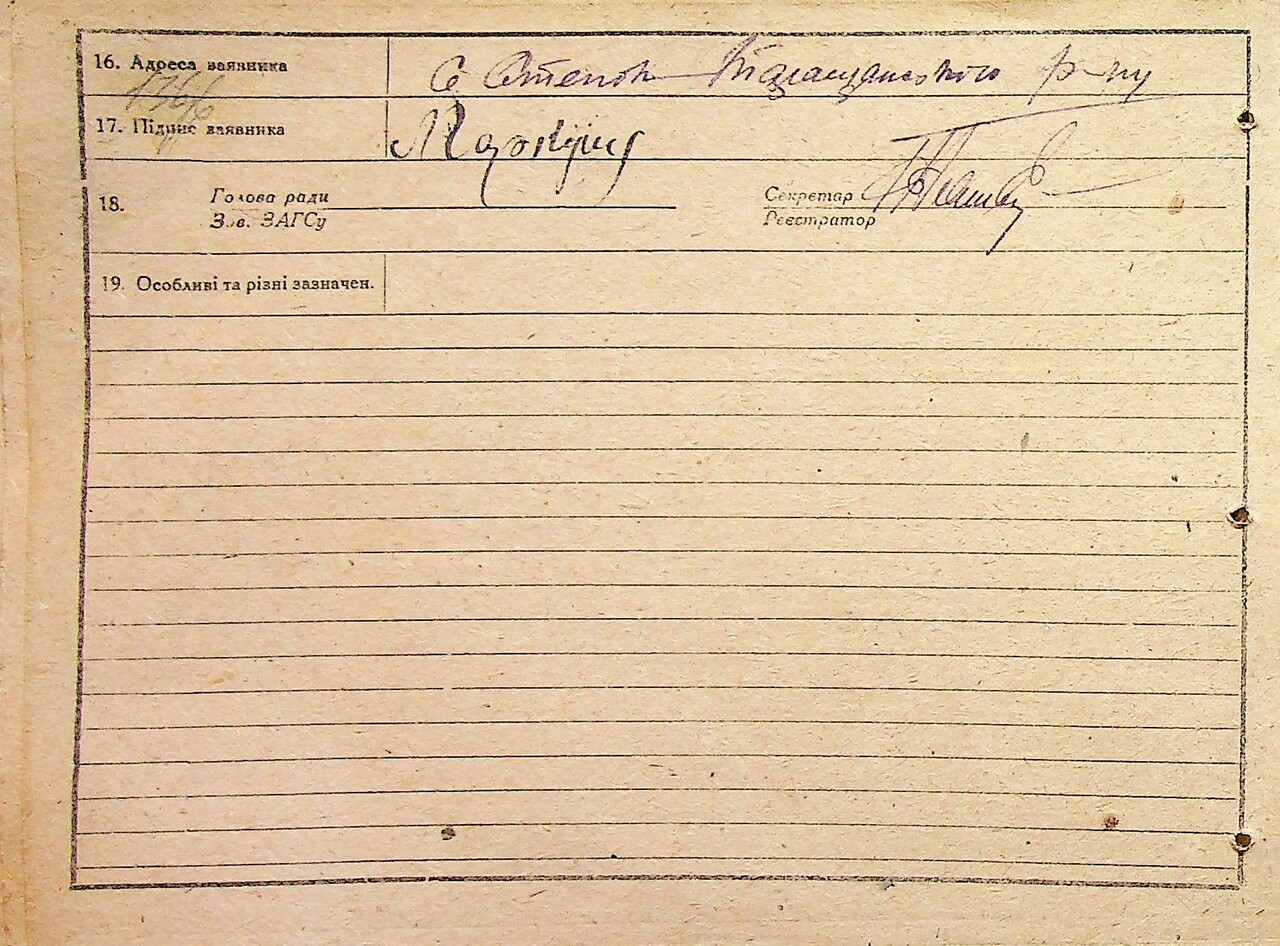 16. Адреса заявника с Степок Таращанського р-ну
1366
17. Підпис заявника
18. Голова ради Секретар
Зав. ЗАГСу Реєстратор
19. Особливі та різні зазначен.